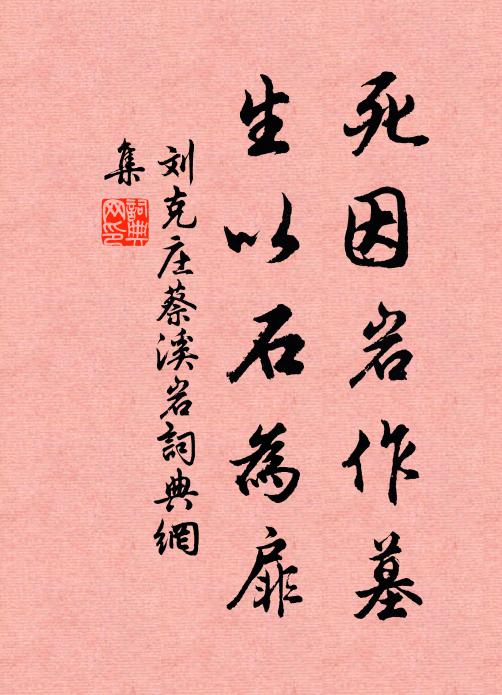 死因岩作墓
生以石為扉
刘克庄蔡溪岩詞典網
集
詞典
网印